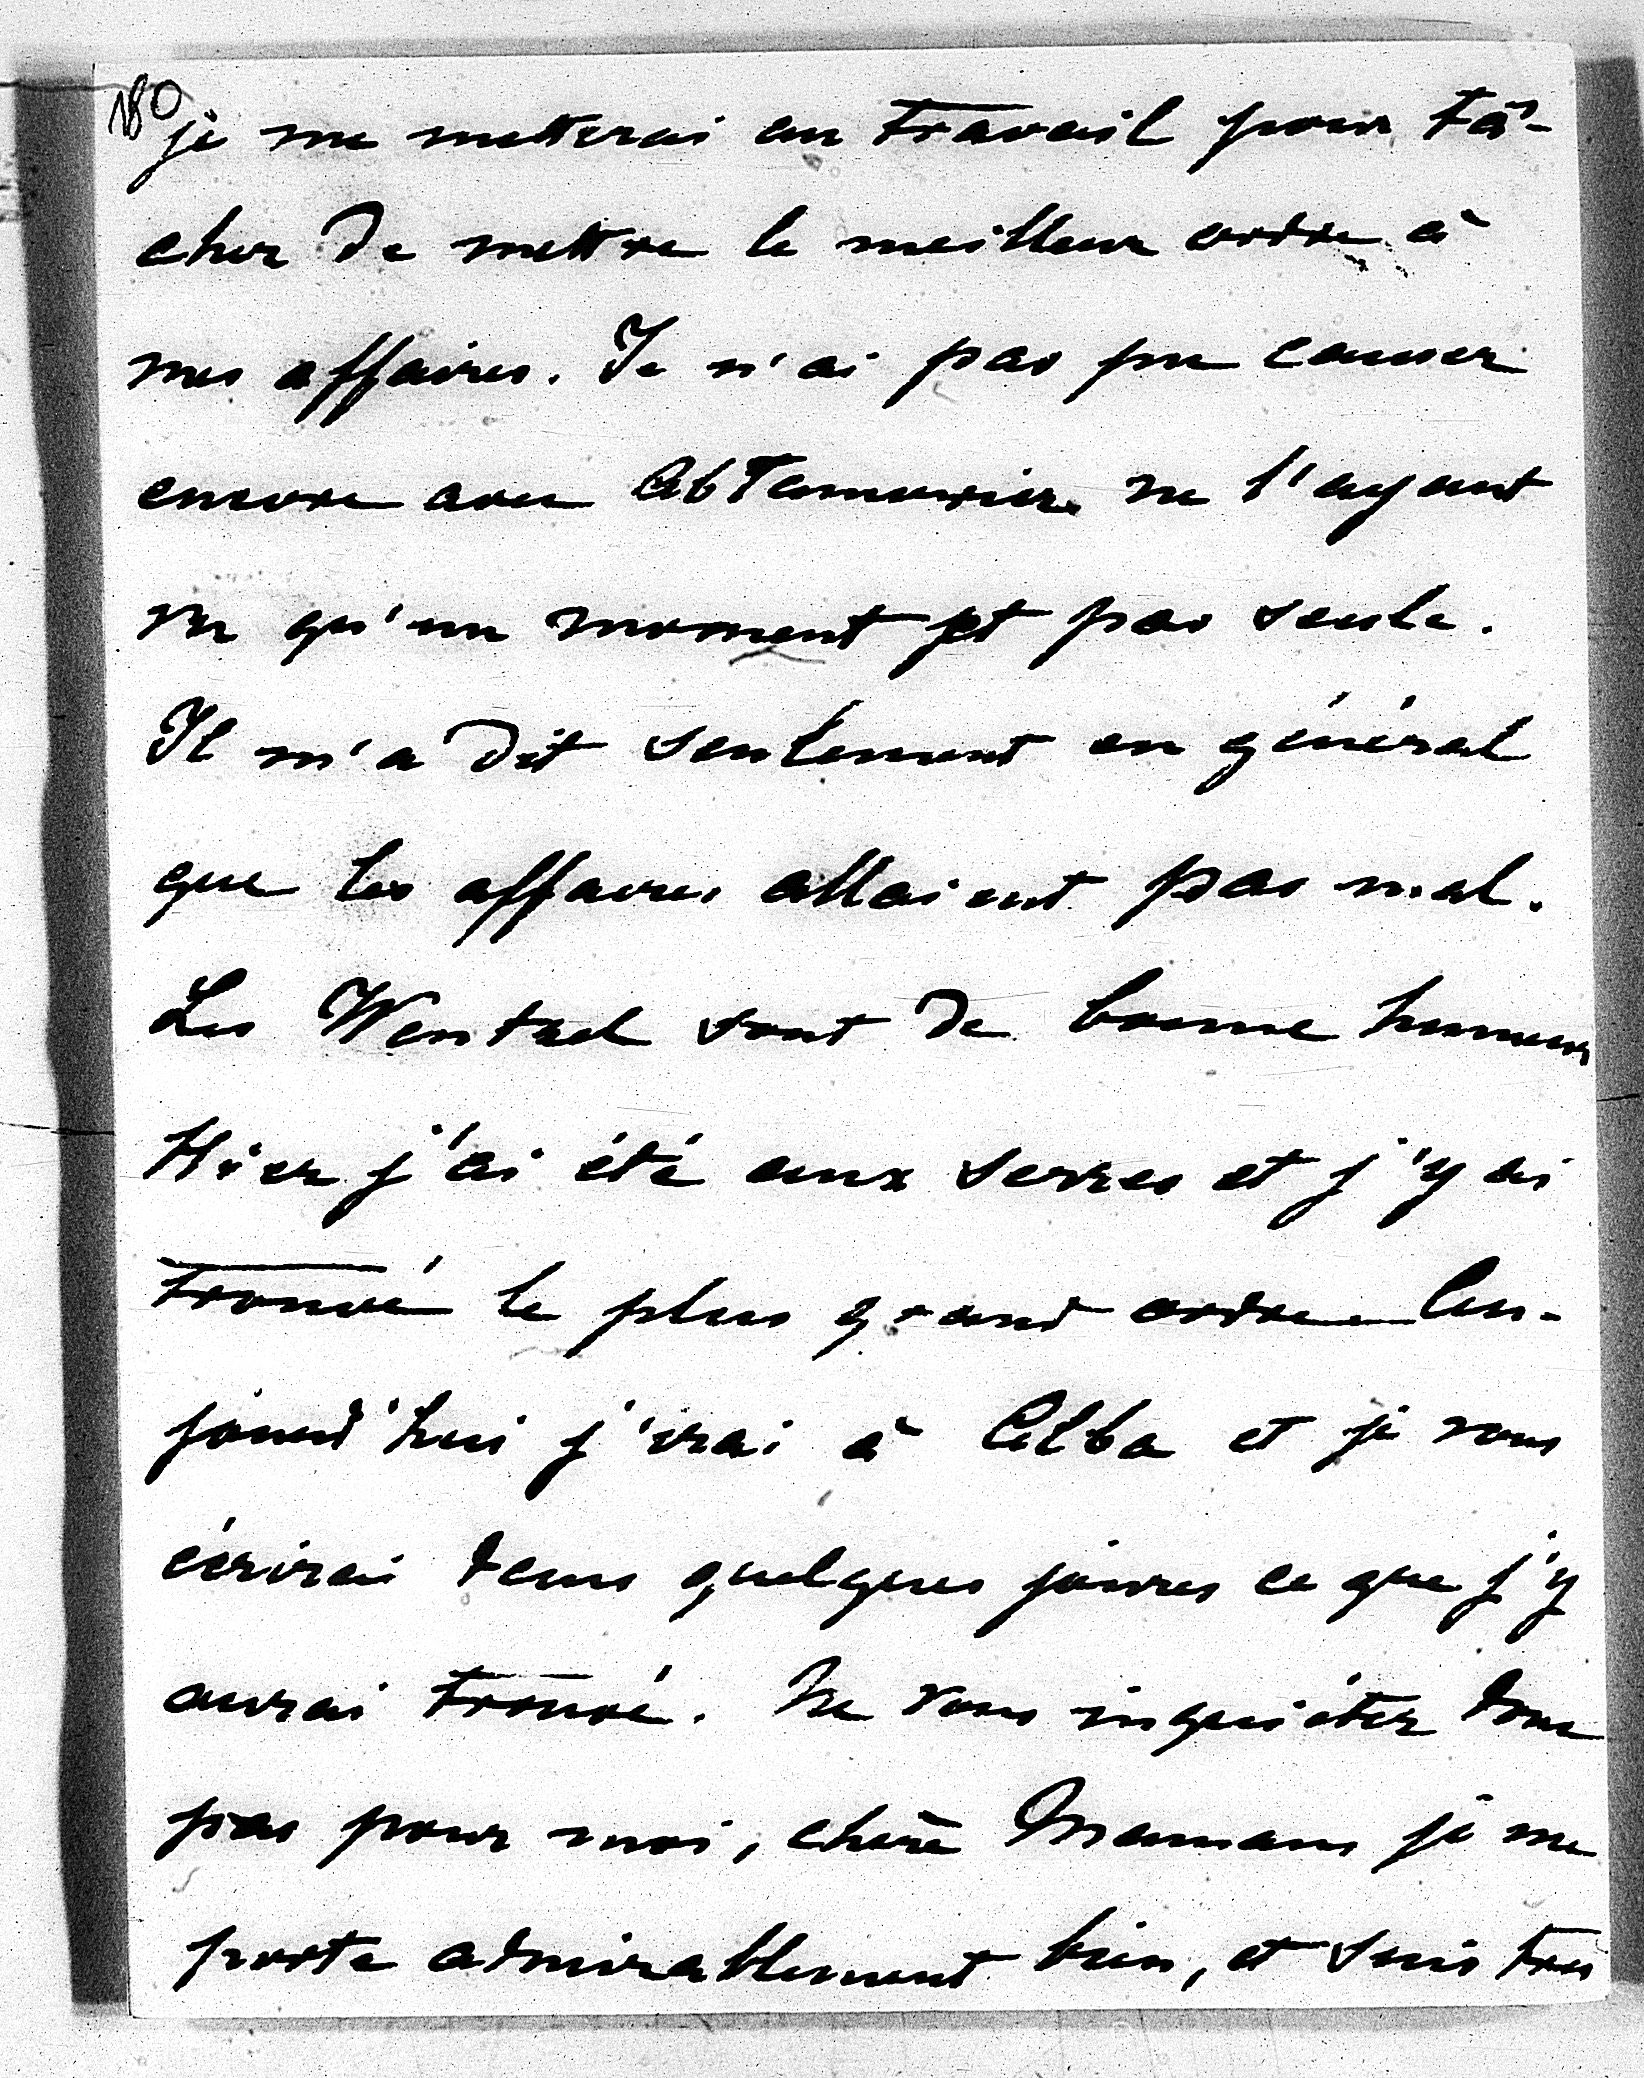 180
je me metterai au travail pour tâ-
cher de mettre le meilleur ordre à
mes affaires. Je n'ai pas pu causer
encore avec ne l'ayant
vu qu'un moment et pas seule.
Il m'a dit seulement en général
que les affaires allaient pas mal.
Les Wentzel sont de bonne humeur
Hier j'ai été aux serres et j'y ai
trouvé le plus grand ordre Au-
jourd'hui j'irai à Alba et je vous
écrirai dans quelques jours ce que j'y
aurai trouvé. Ne vous inquiéter donc
pas pour moi, chère Maman je me
porte admirablement bien, et suis très